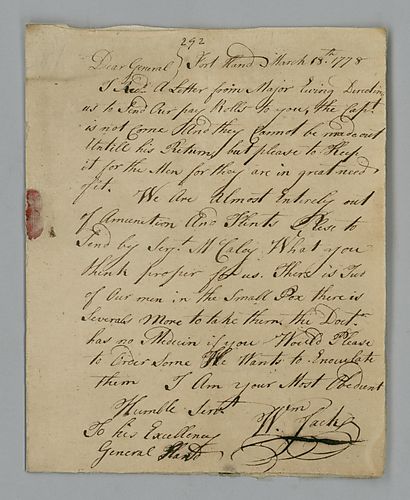 292
Dear General } Fort Hand March 18th 1778
I Recd A Letter from Major Ewing Directing
us to Send Our pay Rolls to you, the Capt
is not Come And they Cannot be made out
Untill his Return, but please to Keep
it for the Men for they are in great need
of it.
We Are Almost Entirely out
of Amunition And Flints Please to
Send by Serjt McCaloy What you
think proper for us. There is Two
of Our men in the Small Pox there is
Several More to take them, the Doctr
has no Medicin if you Would Please
to Order Some We Wants to Enoculate
them I Am your Most Obedient
Humble Servt
Wm
To his Excellency
General Hand